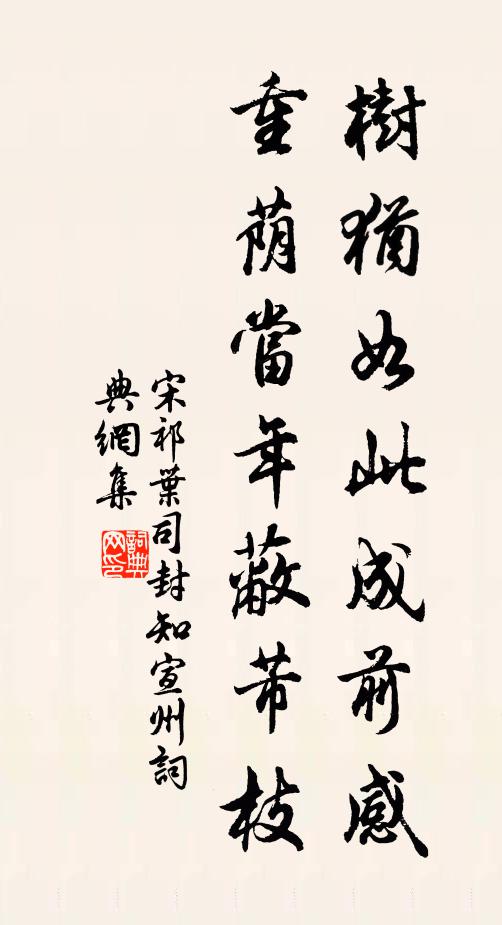 樹猶如此成前感
重蔭當年蔽芾枝
宋祁葉司封知宣州詞
典網集
詞典
网印